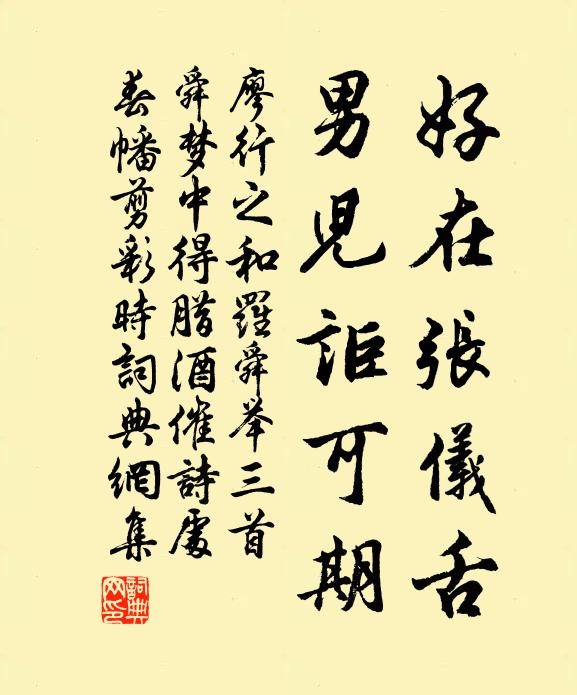 好在張儀舌
男児詎可期
廖行之和羅舜举三首
舜梦中得腊酒催詩處
春幡剪彩時詞典網集